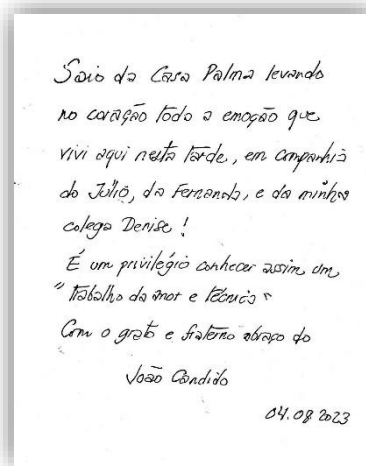 Saio da Casa Palma levando
no coração toda a emoção que
vivi aqui nesta tarde, em companhia
do Júlio, da Fernanda, e da minha
colega Denise!
É um privilégio conhecer assim um
"Trabalho da amor e técnica"
Com o grato e fraterno abraço do
João Candido
04.08 2023